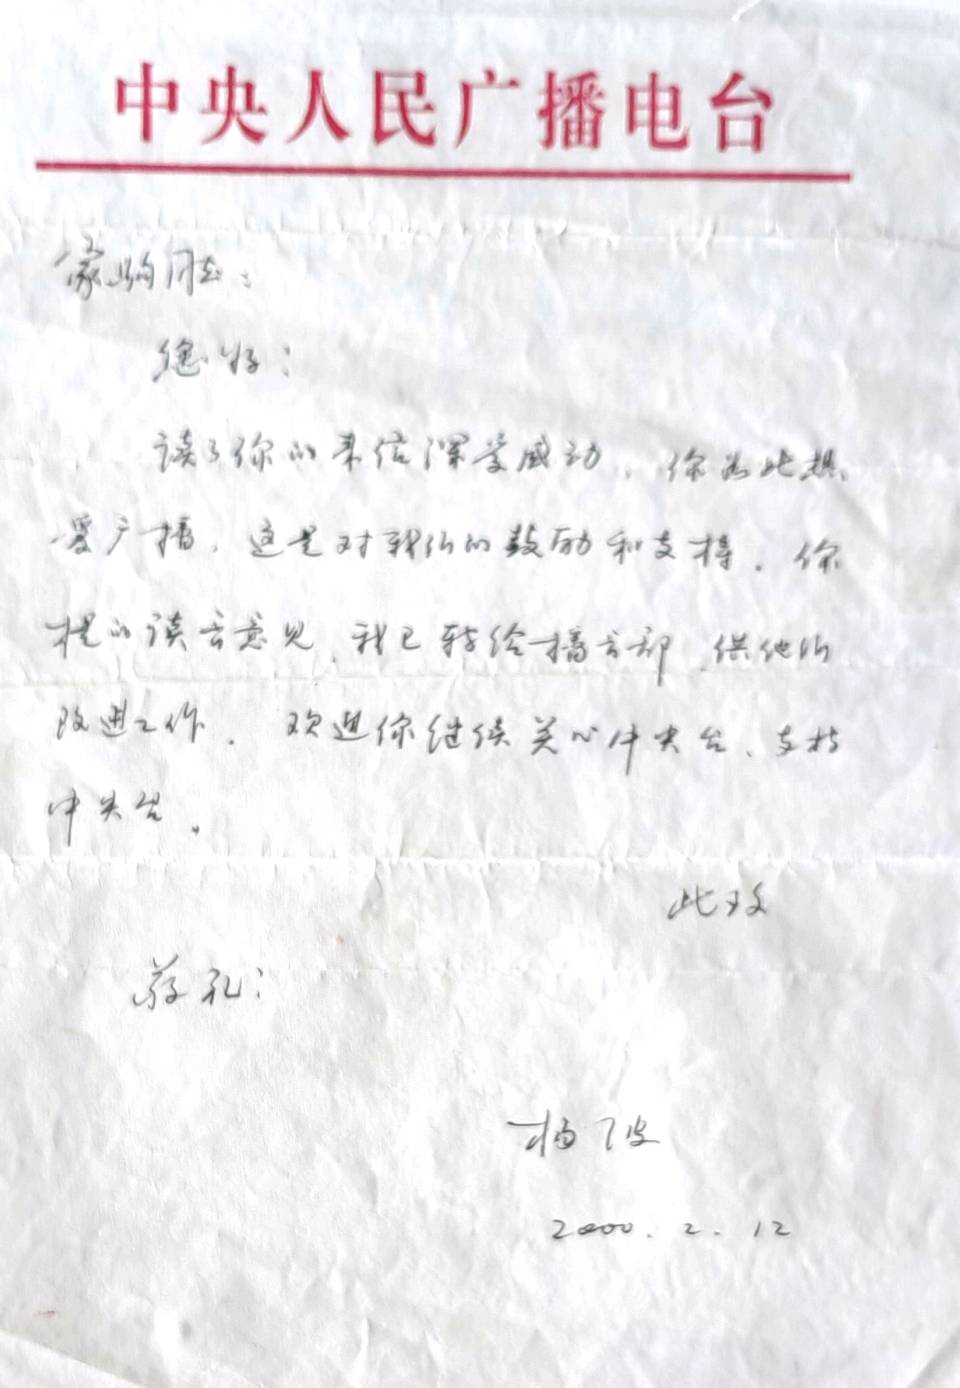 中央人民广播电台
家驹同志：
您好！
读了你的来信深受感动，你如此热
爱广播，这是对我们的鼓励和支持。你
提的读音意见，我已转给播音部，供他们
改进工作。欢迎你继续关心中央台、支持
中央台。
此致
敬礼！
杨波
2000.2.12